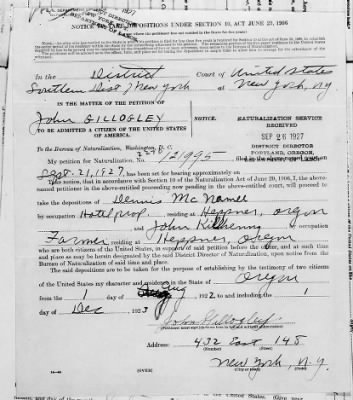 NOTICE DEPOSITIONS UNDER SECTION 10, ACT JUNE 29, 1906
In the District Court of United States
Southern Dist of New York at New York, NY
IN THE MATTER OF THE PETITION OF
John GILLOGLEY
TO BE ADMITTED A CITIZEN OF THE UNITED STATES
OF AMERICA.
NOTICE.
NATURALIZATION SERVICE
RECEIVED
SEP 26 1927
DISTRICT DIRECTOR
PORTLAND, OREGON.
To the Bureau of Naturalization, Washington, D. C.
My petition for Naturalization, No. 121995
Sept. 21, 1927 has been set for hearing approximately on
Take notice, that in accordance with Section 10 of the Naturalization Act of June 29, 1906, I, the above-
named petitioner in the above-entitled proceeding now pending in the above-entitled court, will proceed to
take the depositions of Dennis McNamee
by occupation Hotel prop., residing at Heppner, oregon
and John Kilkenny occupation
Farmer residing at Heppner, Oregon
who are both citizens of the United States, in support of said petition before the officer, and at such time
and place as may be herein designated by the said District Director of Naturalization, upon notice from the
Bureau of Naturalization of said time and place.
The said depositions are to be taken for the purpose of establishing by the testimony of two citizens
of the United States my character and residence in the State of Oregon
from the 1 day of Aug 1922 to and including the 1
day of Dec, 1923
John Gillogley
Address: 432 East 148
New York, N.Y.